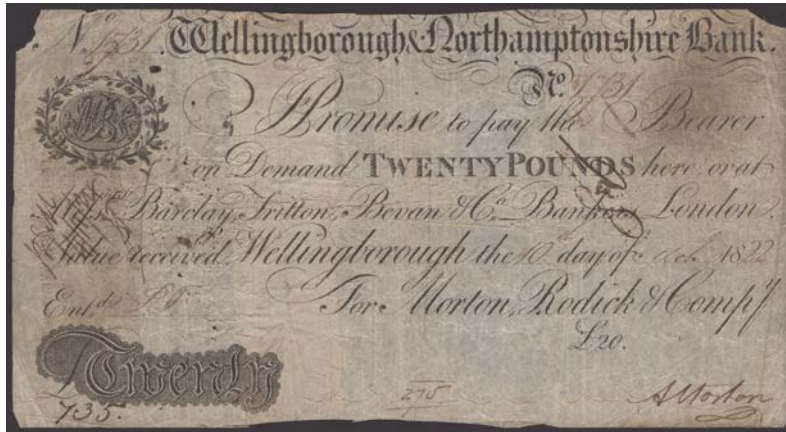 Wellingborough & Northamptonshire Bank.
No
Promise to pay the Bearer
on Demand TWENTY POUNDS here, or at
Barclay, Tritton, Bevan & Co. Bankers London.
Value received, Wellingborough the 10 day of Oct. 1822
Entd.
For Morton, Rodick & Compy
£20.
£ Twenty
735.
A Morton